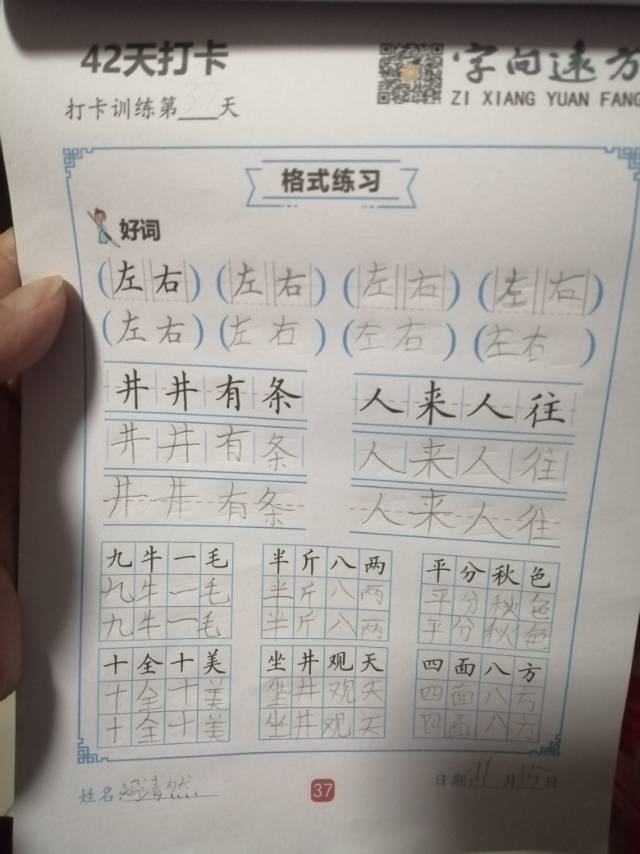 42天打卡
字向远方
ZI XIANG YUAN FANG
打卡训练第37天
格式练习
好词
(左右) (左右) (左右) (左右)
(左右) (左右) (左右) (左右)
井井有条 人来人往
井井有条 人来人往
井井有条 人来人往
九牛一毛 半斤八两 平分秋色
九牛一毛 半斤八两 平分秋色
九牛一毛 半斤八两 平分秋色
十全十美 坐井观天 四面八方
十全十美 坐井观天 四面八方
十全十美 坐井观天 四面八方
姓名:清然 37 日期:11月15日